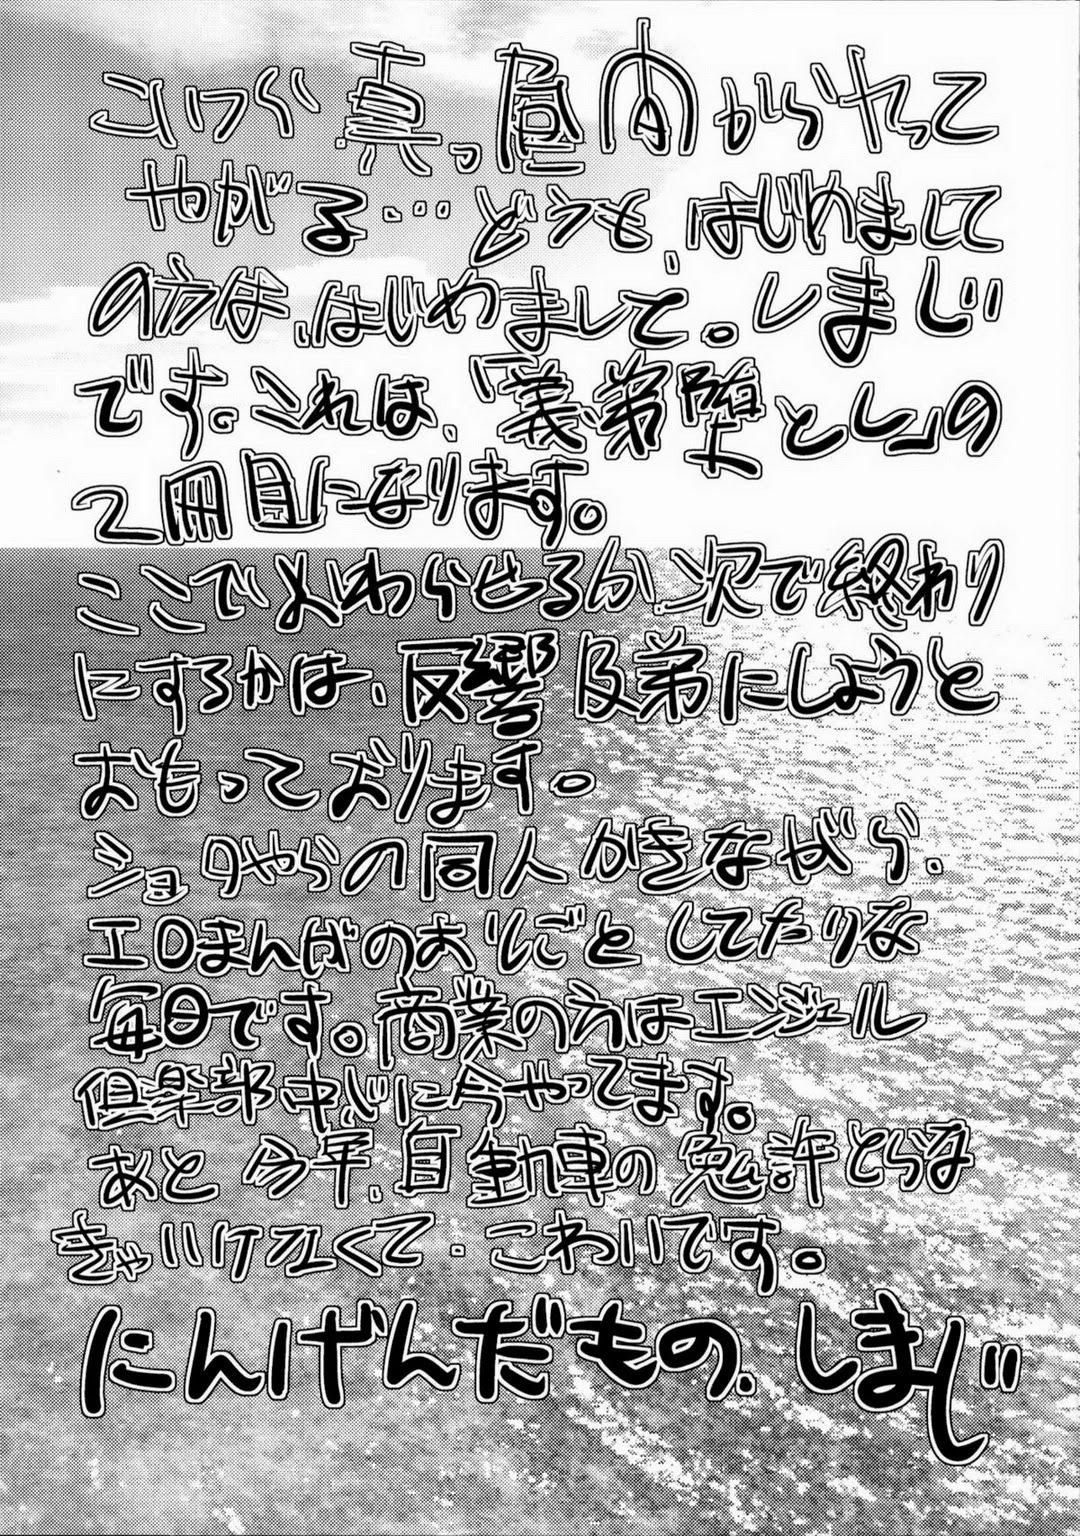 こいつら真っ昼間からヤって
やがる…どうも、はじめまして
の方は、はじめまして。しまじ
です。これは、「義・弟堕とし」の
2冊目になります。
ここでおわらせるか次で終わり
にするかは、反響 及第にしようと
おもっております。
ショタやらの同人かきながら、
エロまんがのおしごとしてたりな
毎日です。商業の方はエンジェル
倶楽部中心に今やってます。
あと今年、自動車の免許とらな
きゃいけなくて・こわいです。
にんげんだもの、しまじ